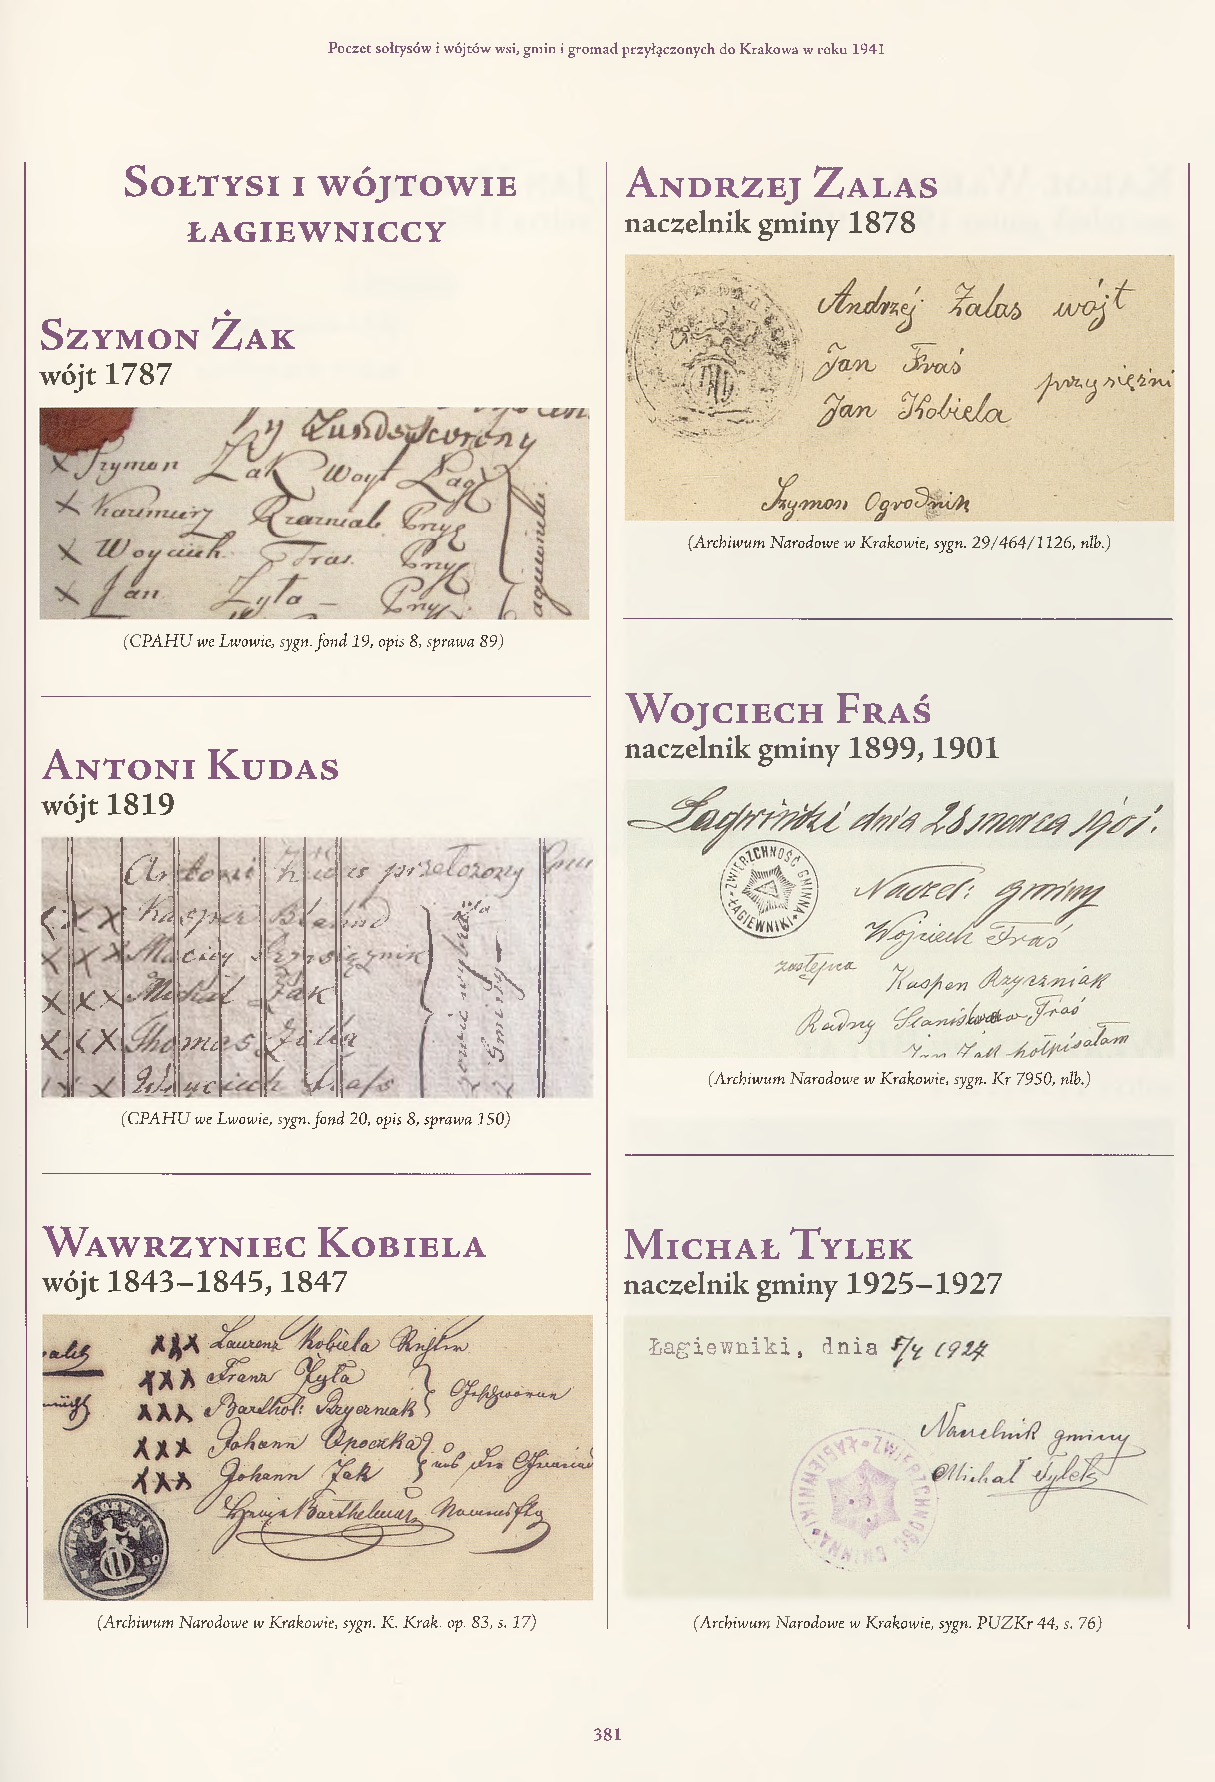 Poczet sołtysów i wójtów wsi, gmin i gromad przyłączonych do Krakowa w roku 1941
Sołtysi i wójtowie
łagiewniccy
Szymon Żak
wójt 1787
Szymon Zak Woyt Łag
Kazimierz
Woyciech Fras Przyś
Jan Zyła – Przyś
(CPAHU we Lwowie, sygn. fond 19, opis 8, sprawa 89)
Antoni Kudas
wójt 1819
Antoni Kudas przełozony
Kasper
Maciey
Michał Żak
Thomas
Woyciech
(CPAHU we Lwowie, sygn. fond 20, opis 8, sprawa 150)
Wawrzyniec Kobiela
wójt 1843–1845, 1847
XXX Laurenz Kobiela Richter
XXX Franz Zyła
XXX Barthol: Rzyczniak Geschworen
XXX Johann Opoczka
XXX Johann Zak
(Archiwum Narodowe w Krakowie, sygn. K. Krak. op. 83, s. 17)
Andrzej Zalas
naczelnik gminy 1878
Andrzéj Zalas wójt
Jan Fraś
przysiężni
Jan Kobiela
Szymon Ogrodnik
(Archiwum Narodowe w Krakowie, sygn. 29/464/1126, nlb.)
Wojciech Fraś
naczelnik gminy 1899, 1901
dnia 28 marca 1901.
ZWIERZCHNOŚĆ GMINNA ŁAGIEWNIKI
Naczel: gminy
Wojciech Fraś
zastępca
Kasper Rzyczniak
Radny Stanisław Fraś
Jan Żak
(Archiwum Narodowe w Krakowie, sygn. Kr 7950, nlb.)
Michał Tylek
naczelnik gminy 1925–1927
Łagiewniki, dnia 5/4 1927
Naczelnik gminy
Michał Tylek
ZWIERZCHNOŚĆ GMINNA
(Archiwum Narodowe w Krakowie, sygn. PUZKr 44, s. 76)
381